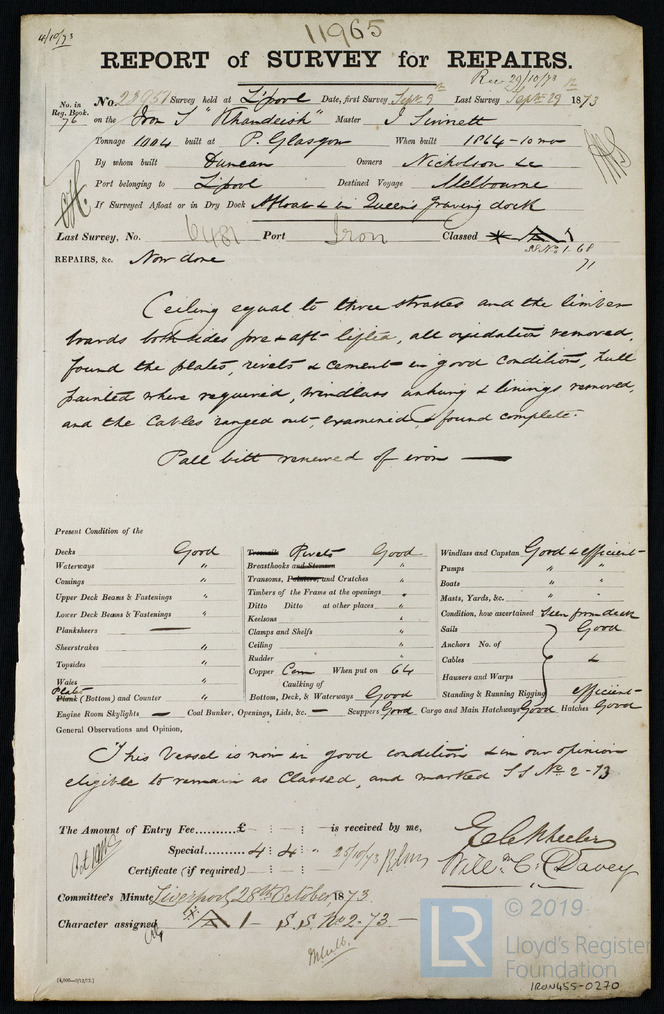 4/10/73
11965
REPORT of SURVEY for REPAIRS.
Rec 29/10/73
No. in Reg. Book. 76
No. 23051 Survey held at L'pool Date, first Survey Sept. 9th Last Survey Sept. 29th 1873
on the Iron S "Khandeish" Master J Sinnett
Tonnage 1004 built at P. Glasgow When built 1864-10 mo
By whom built Duncan Owners Nicholson &c
Port belonging to L'pool Destined Voyage Melbourne
If Surveyed Afloat or in Dry Dock Afloat & in Queen's graving dock
Last Survey, No. 6481 Port Iron Classed A 1
S.S. No. 1-68
71
REPAIRS, &c. Now done
Ceiling equal to three strakes and the limber
boards both sides fore & aft lifted, all oxidation removed,
found the plates, rivets & cement in good condition, hull
painted where required, windlass unhung & linings removed,
and the cables ranged out, examined, & found complete.
Pall bitt renewed of iron —
Present Condition of the
Decks Good
Waterways "
Comings "
Upper Deck Beams & Fastenings "
Lower Deck Beams & Fastenings "
Planksheers —
Sheerstrakes "
Topsides "
Wales "
Plates
Plank (Bottom) and Counter "
Treenails Rivets Good
Breasthooks and Stemson "
Transoms, Pointers, and Crutches "
Timbers of the Frame at the openings "
Ditto Ditto at other places "
Keelsons "
Clamps and Shelfs "
Ceiling "
Rudder "
Copper Cem When put on 64
Caulking of
Bottom, Deck, & Waterways Good
Windlass and Capstan Good & efficient
Pumps " "
Boats " "
Masts, Yards, &c. " "
Condition, how ascertained Seen from deck
Sails Good
Anchors No. of
Cables &
Hausers and Warps
Standing & Running Rigging efficient
Engine Room Skylights — Coal Bunker, Openings, Lids, &c. — Scuppers Good Cargo and Main Hatchways Good Hatches Good
General Observations and Opinion,
This Vessel is now in good condition & in our opinion
eligible to remain as Classed, and marked S S No. 2-73
The Amount of Entry Fee..........£ - : - : - is received by me,
Special.......... 4 : 4 : " 25/10/73
Certificate (if required)
Will m C. Davey
Committee's Minute Liverpool, 28th October, 1873.
Character assigned A 1 - S.S. No 2-73 -
[4,000—9/12/72.]
© 2019
LR
Lloyd's Register
Foundation
IRON455-0270